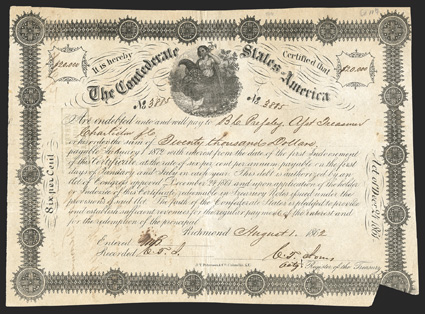 It is hereby Certified that
$20,000 $20,000
The Confederate States of America
No 3885 No 3885
Are indebted unto and will pay to B. C. Pressley Asst Treasurer
Charleston
or order the sum of Twenty thousand Dollars,
payable January 1 with interest from the date of the first Indorsement
of this Certificate at the rate of six per cent per annum payable on the first
day of January and July in each year. This debt is authorized by an
Act of Congress approved December 24 1861 and upon application of the holder
or Indorsee of this Certificate
The faith of the Confederate States is pledged to provide
and establish sufficient revenues for the regular payment of the interest and
for the redemption of the principal.
Richmond August 1. 1862
Entered
Recorded C. T. J.
Register of the Treasury
Six per Cent
Act of Dec. 24th 1861